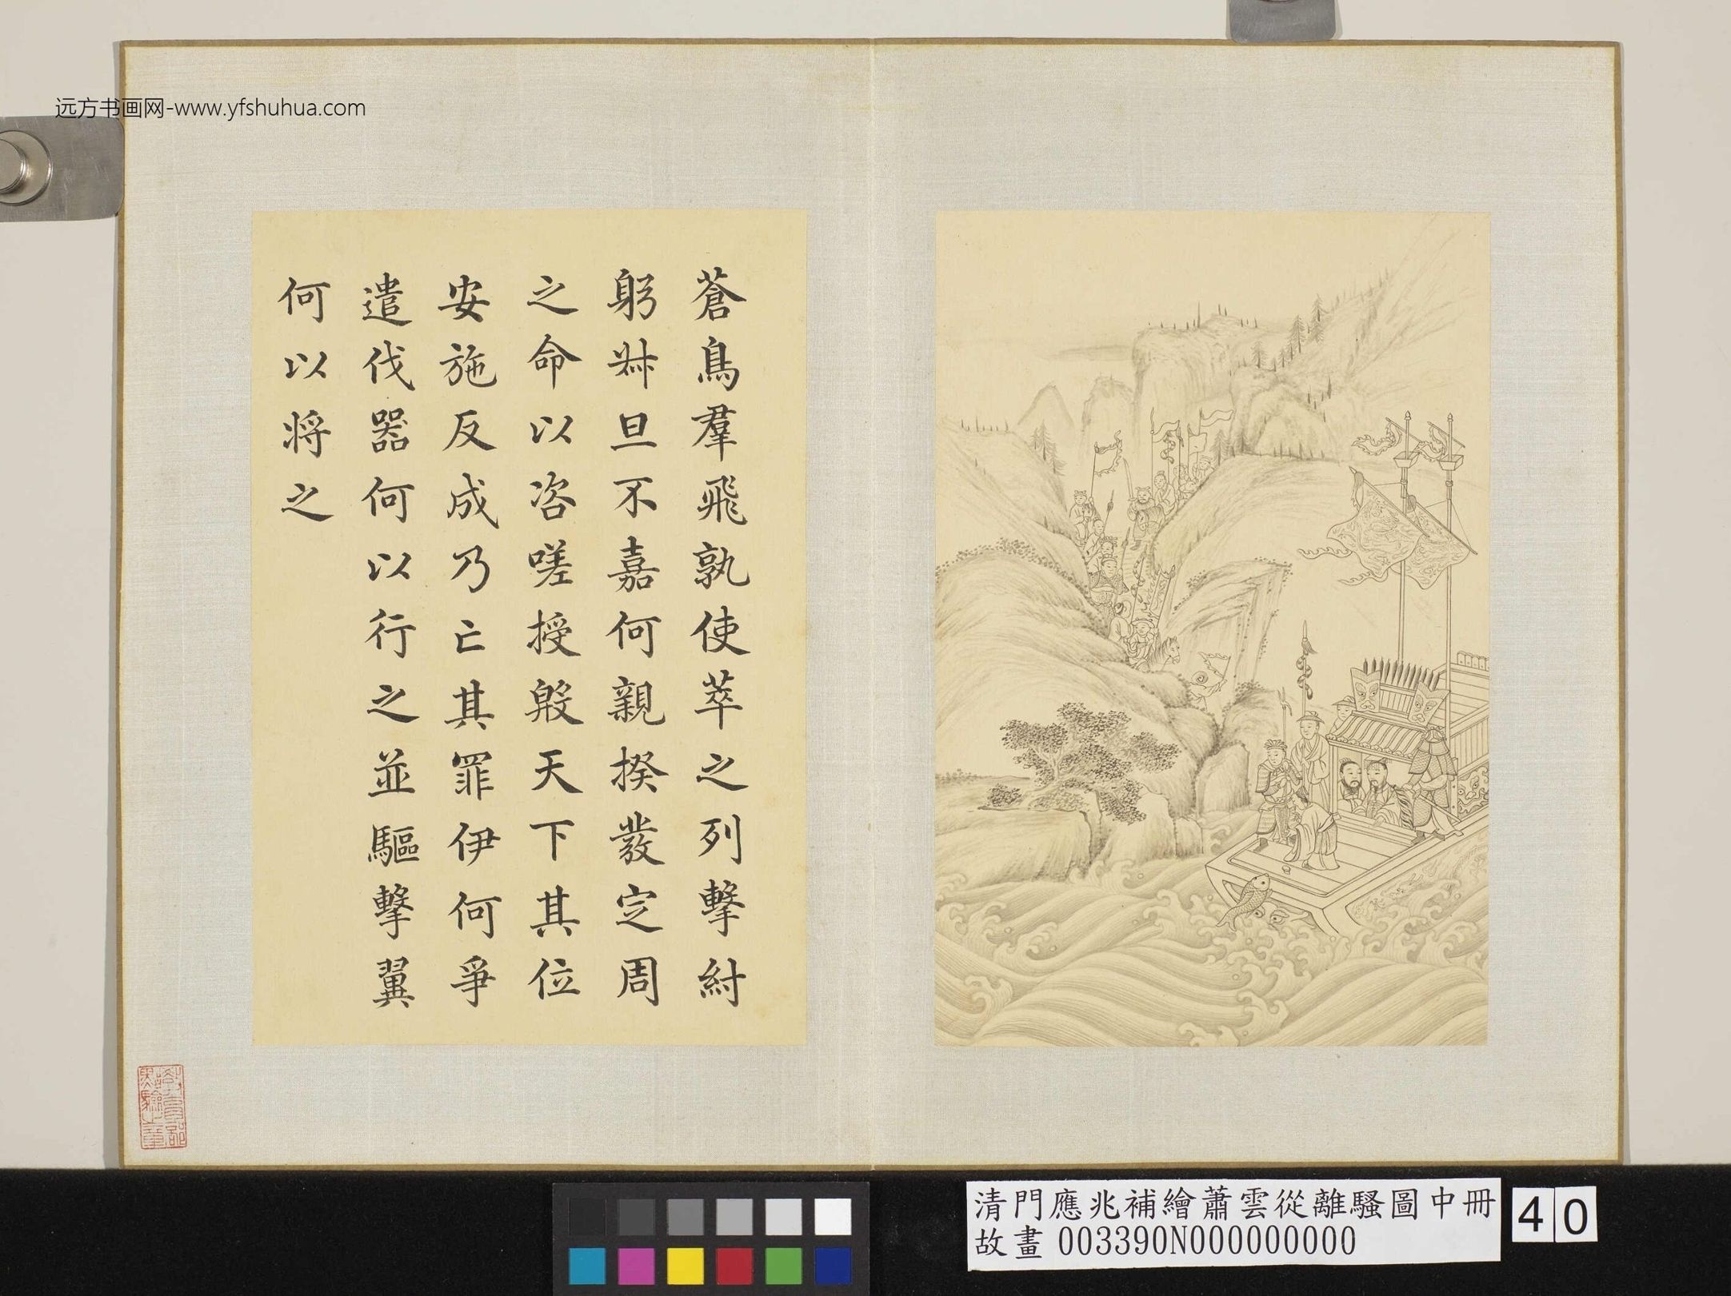 远方书画网-www.yfshuhua.com
蒼鳥羣飛孰使萃之列擊紂
躬叔旦不嘉何親揆發定周
之命以咨嗟授殷天下其位
安施反成乃亡其罪伊何爭
遣伐器何以行之並驅擊翼
何以將之
清門應兆補繪蕭雲從離騷圖中冊
故畫 003390N000000000
40